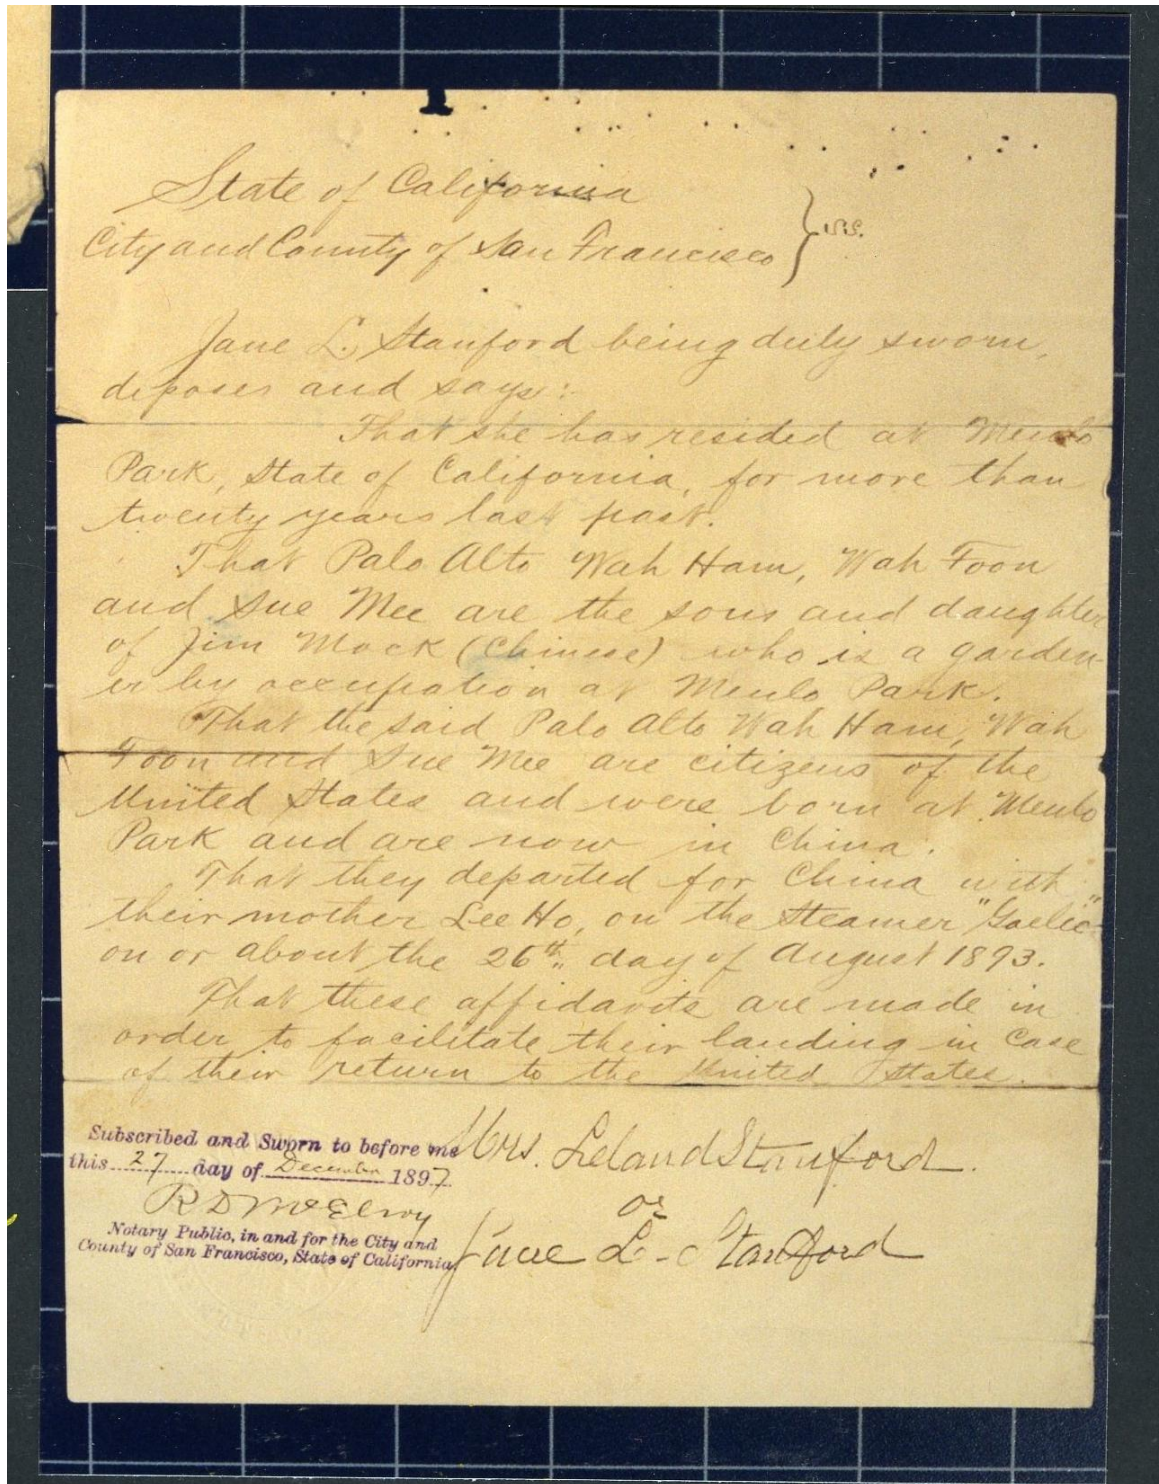 State of California
City and County of San Francisco } S.S.
Jane L. Stanford being duly sworn,
deposes and says:-
That she has resided at Menlo
Park, State of California, for more than
twenty years last past.
That Palo Alto Wah Ham, Wah Foon
and Sue Mee are the sons and daughter
of Jim Mock (Chinese) who is a garden-
er by occupation at Menlo Park.
That the said Palo Alto Wah Ham, Wah
Foon and Sue Mee are citizens of the
United States and were born at Menlo
Park and are now in China.
That they departed for China with
their mother Lee Ho, on the Steamer "Gaelic"
on or about the 26th day of August 1893.
That these affidavits are made in
order to facilitate their landing in case
of their return to the United States.
Subscribed and Sworn to before me
this 27 day of December 1897
R D McElroy
Notary Public, in and for the City and
County of San Francisco, State of California
Mrs. Leland Stanford.
or
Jane L. Stanford